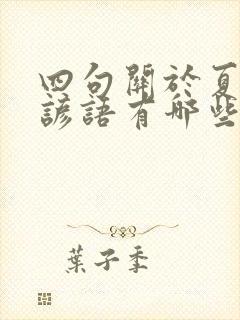 四句關於夏
諺語有哪些
葉子季